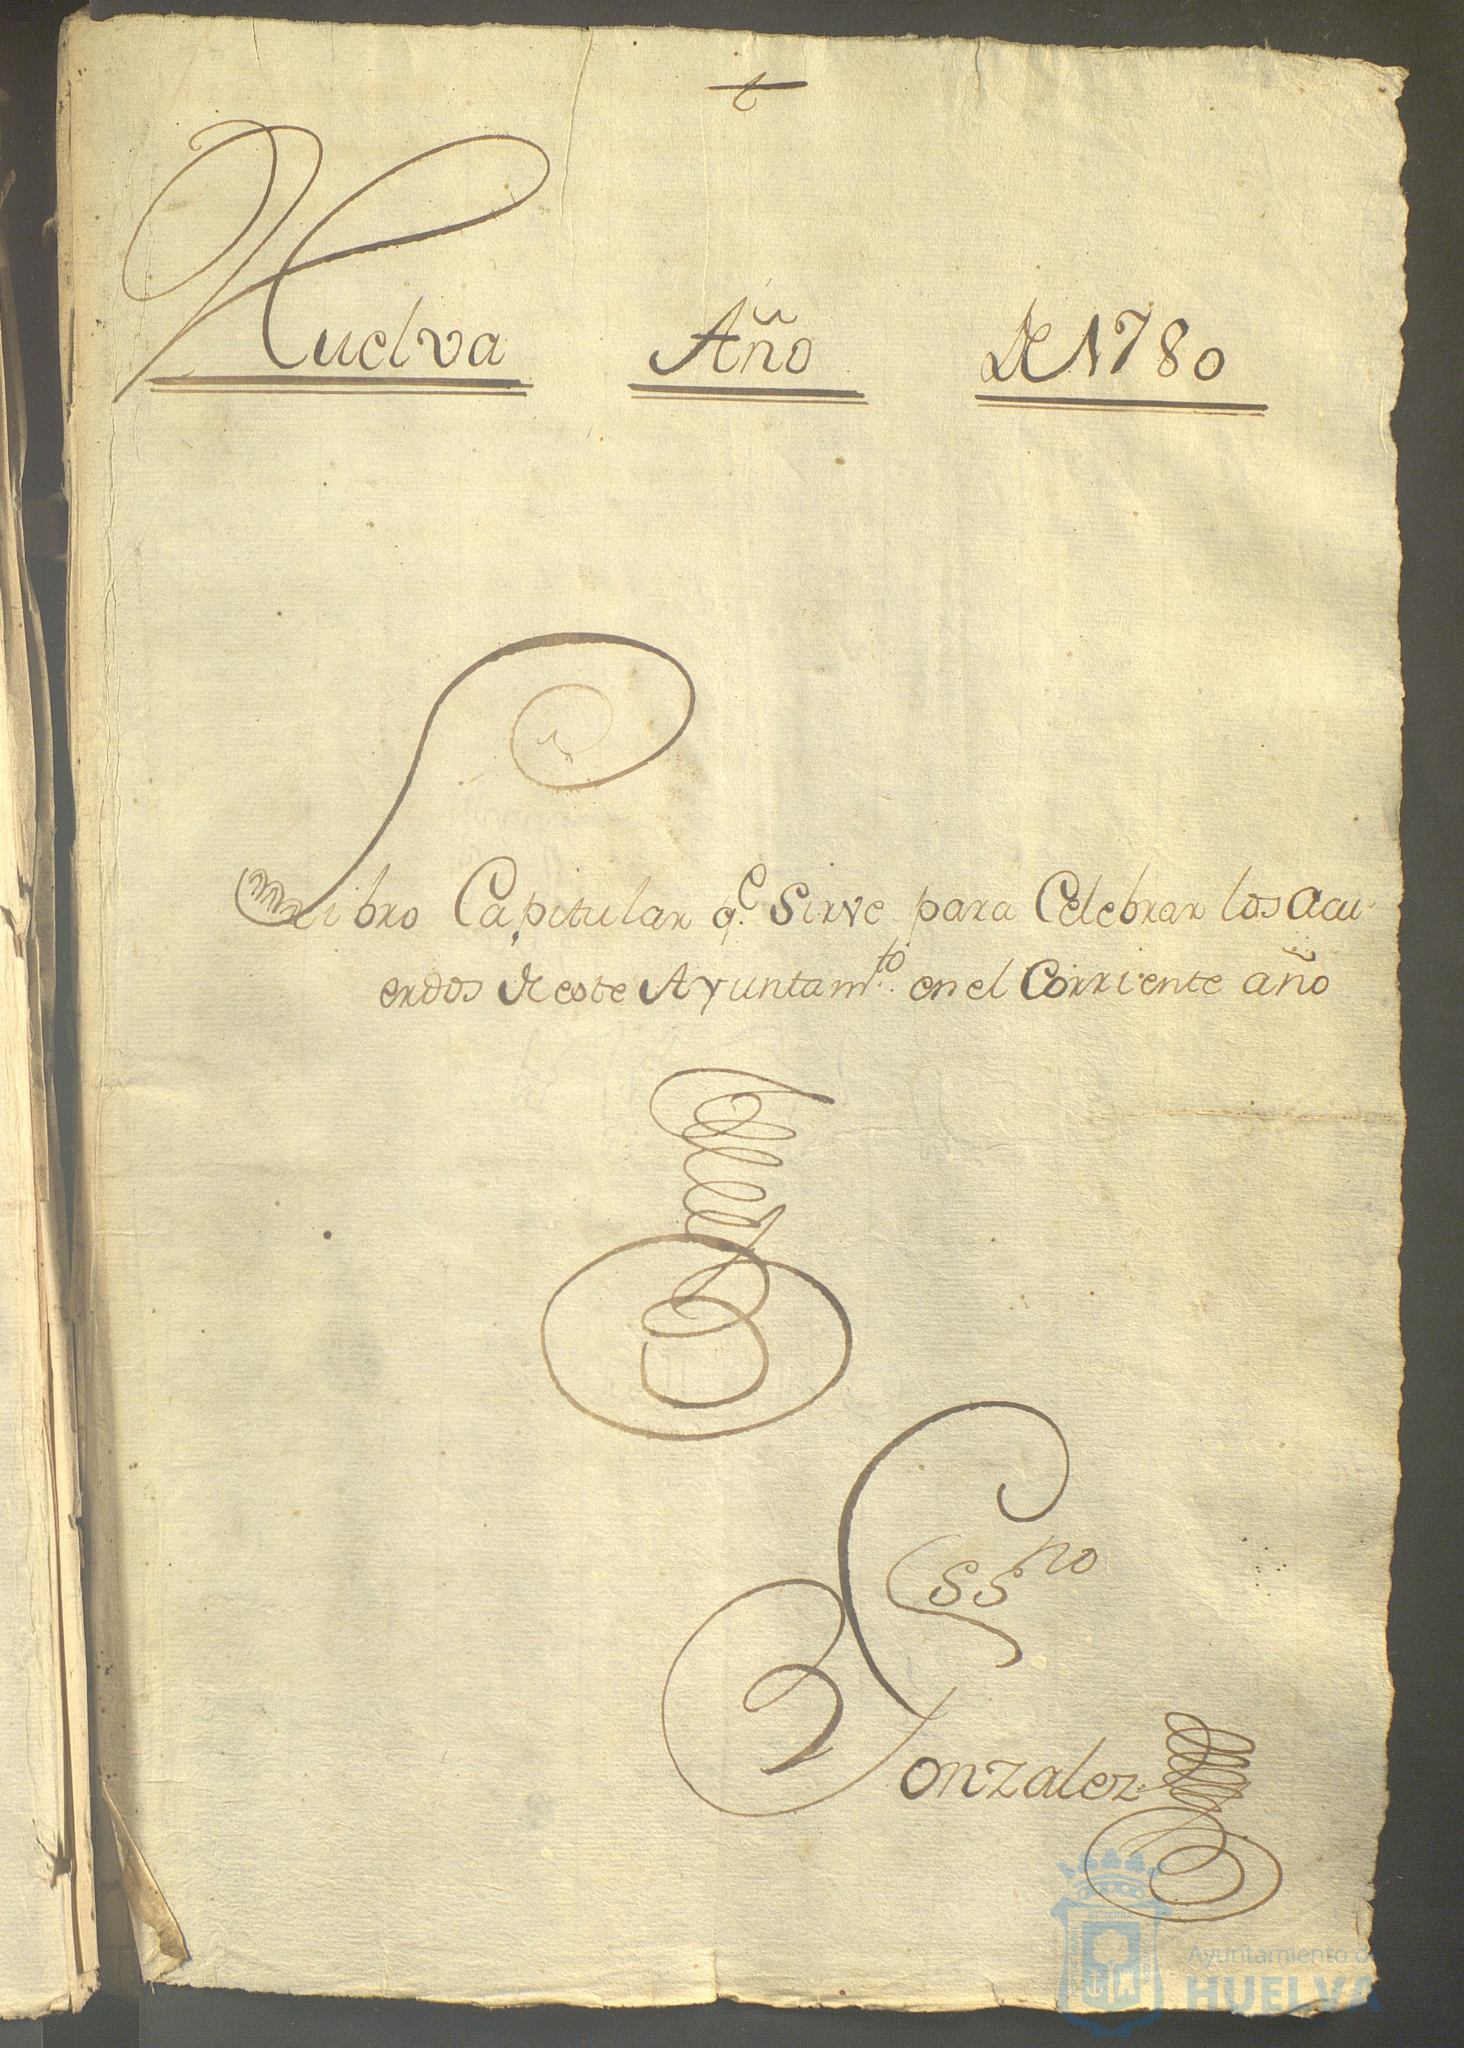 Huelva Año De 1780
Libro Capitular q.e Sirve para Celebrar los acu-
erdos de este Ayuntam.to en el Corriente año
Essno
Gonzalez
Ayuntamiento d
HUELVA